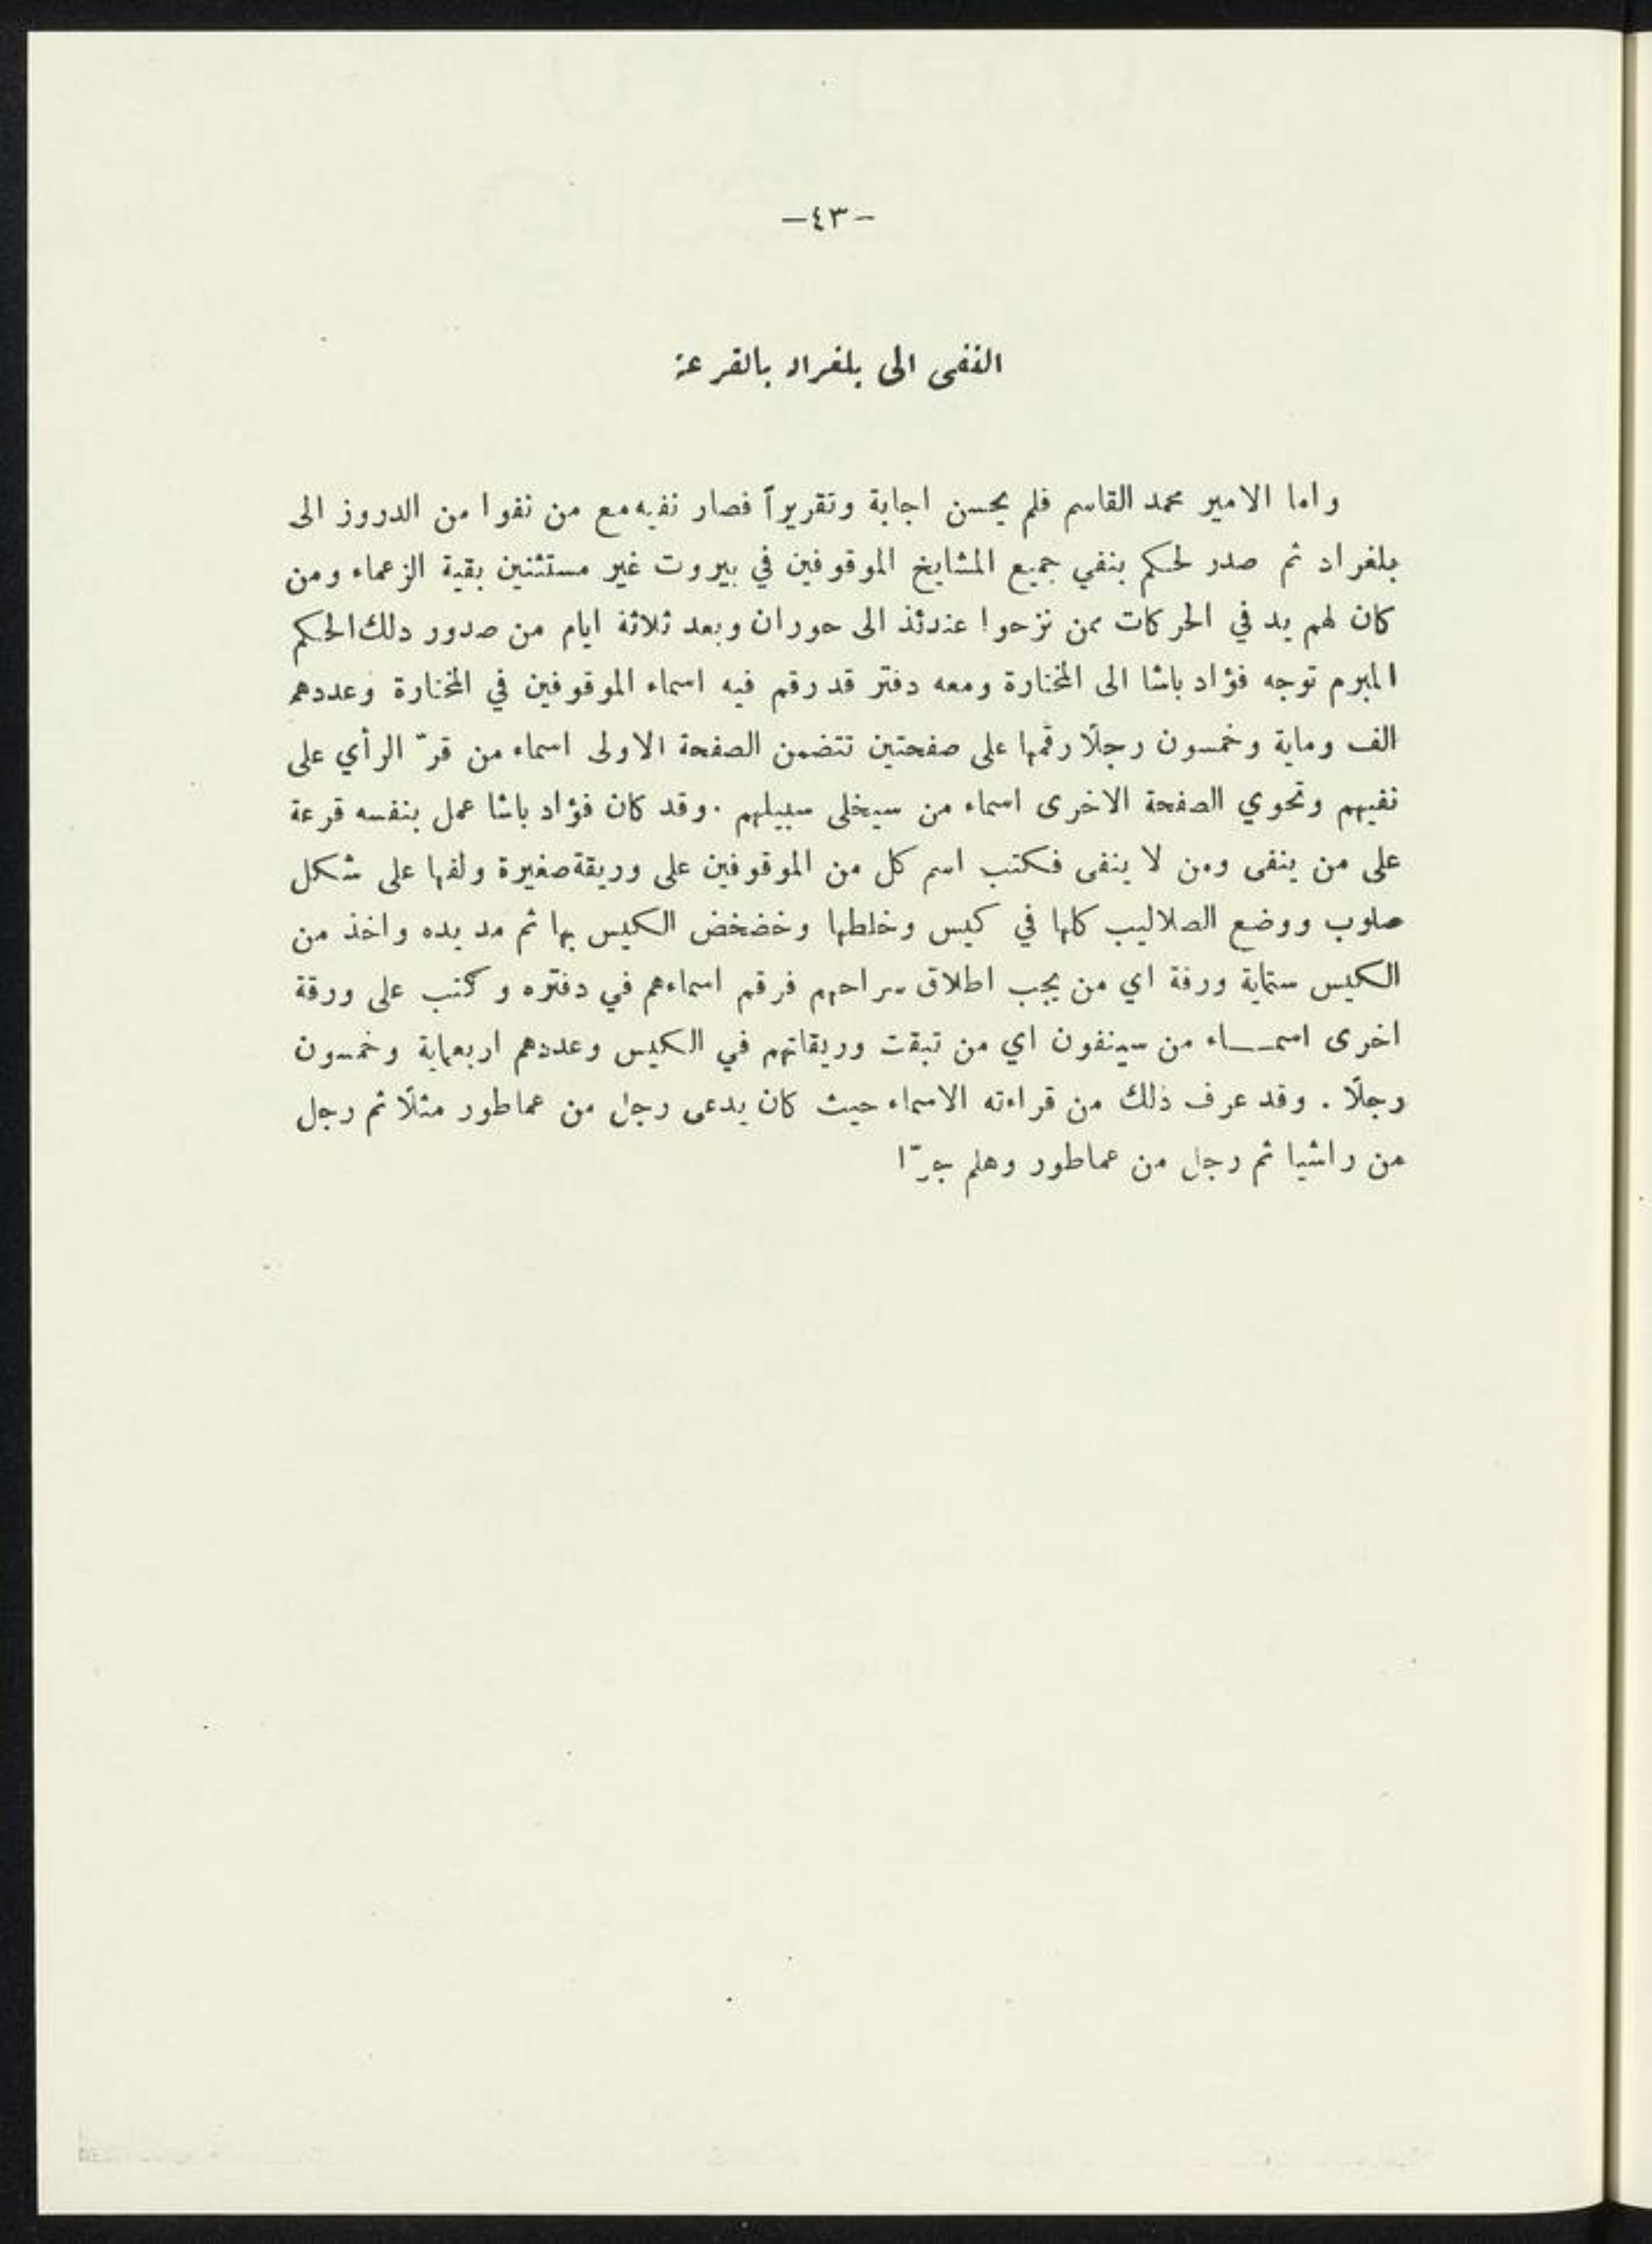 -٤٣-
النفي الى بلغراد بالقرعة
واما الامير محمد القاسم فلم يحسن اجابة وتقريراً فصار نفيه مع من نفوا من الدروز الى
بلغراد ثم صدر لحكم بنفي جميع المشايخ الموقوفين في بيروت غير مستثنين بقية الزعماء ومن
كان لهم يد في الحركات ممن نزحوا عندئذ الى حوران وبعد ثلاثة ايام من صدور دلك الحكم
المبرم توجه فؤاد باشا الى المختارة ومعه دفتر قد رقم فيه اسماء الموقوفين في المختارة وعددهم
الف وماية وخمسون رجلًا رقمها على صفحتين تتضمن الصفحة الاولى اسماء من قرّ الرأي على
نفيهم وتحوي الصفحة الاخرى اسماء من سيخلى سبيلهم . وقد كان فؤاد باشا عمل بنفسه قرعة
على من ينفى ومن لا ينفى فكتب اسم كل من الموقوفين على وريقة صغيرة ولفها على شكل
صلوب ووضع الصلاليب كلها في كيس وخلطها وخضخض الكيس بها ثم مد يده واخذ من
الكيس ستماية ورقة اي من يجب اطلاق سراحهم فرقم اسماءهم في دفتره وكتب على ورقة
اخرى اسمـــاء من سينفون اي من تبقت وريقاتهم في الكيس وعددهم اربعماية وخمسون
رجلًا . وقد عرف ذلك من قراءته الاسماء حيث كان يدعى رجل من عماطور مثلًا ثم رجل
من راشيا ثم رجل من عماطور وهلم جرّا